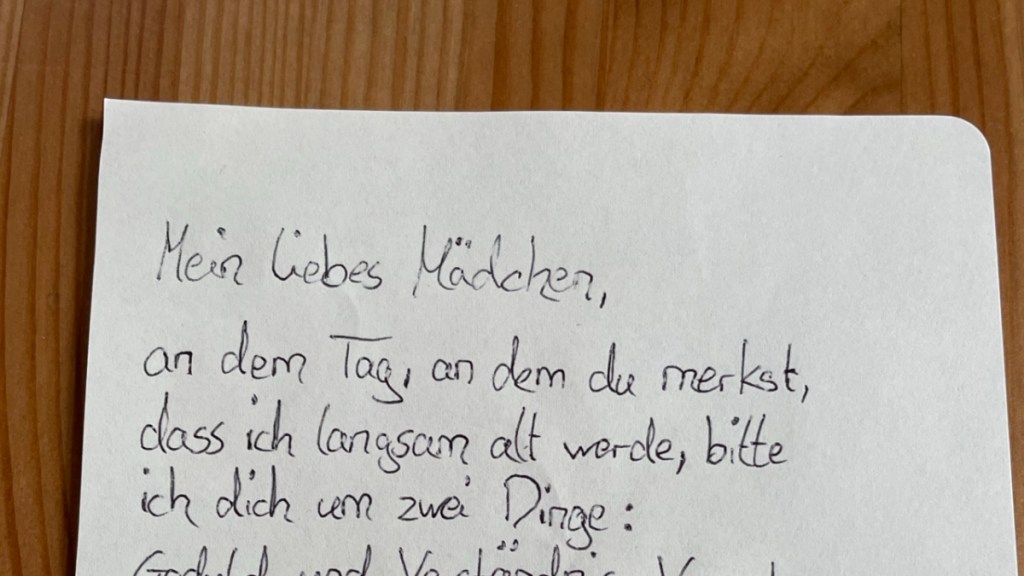 Mein liebes Mädchen,
an dem Tag, an dem du merkst,
dass ich langsam alt werde, bitte
ich dich um zwei Dinge:
Geduld und Verständnis.